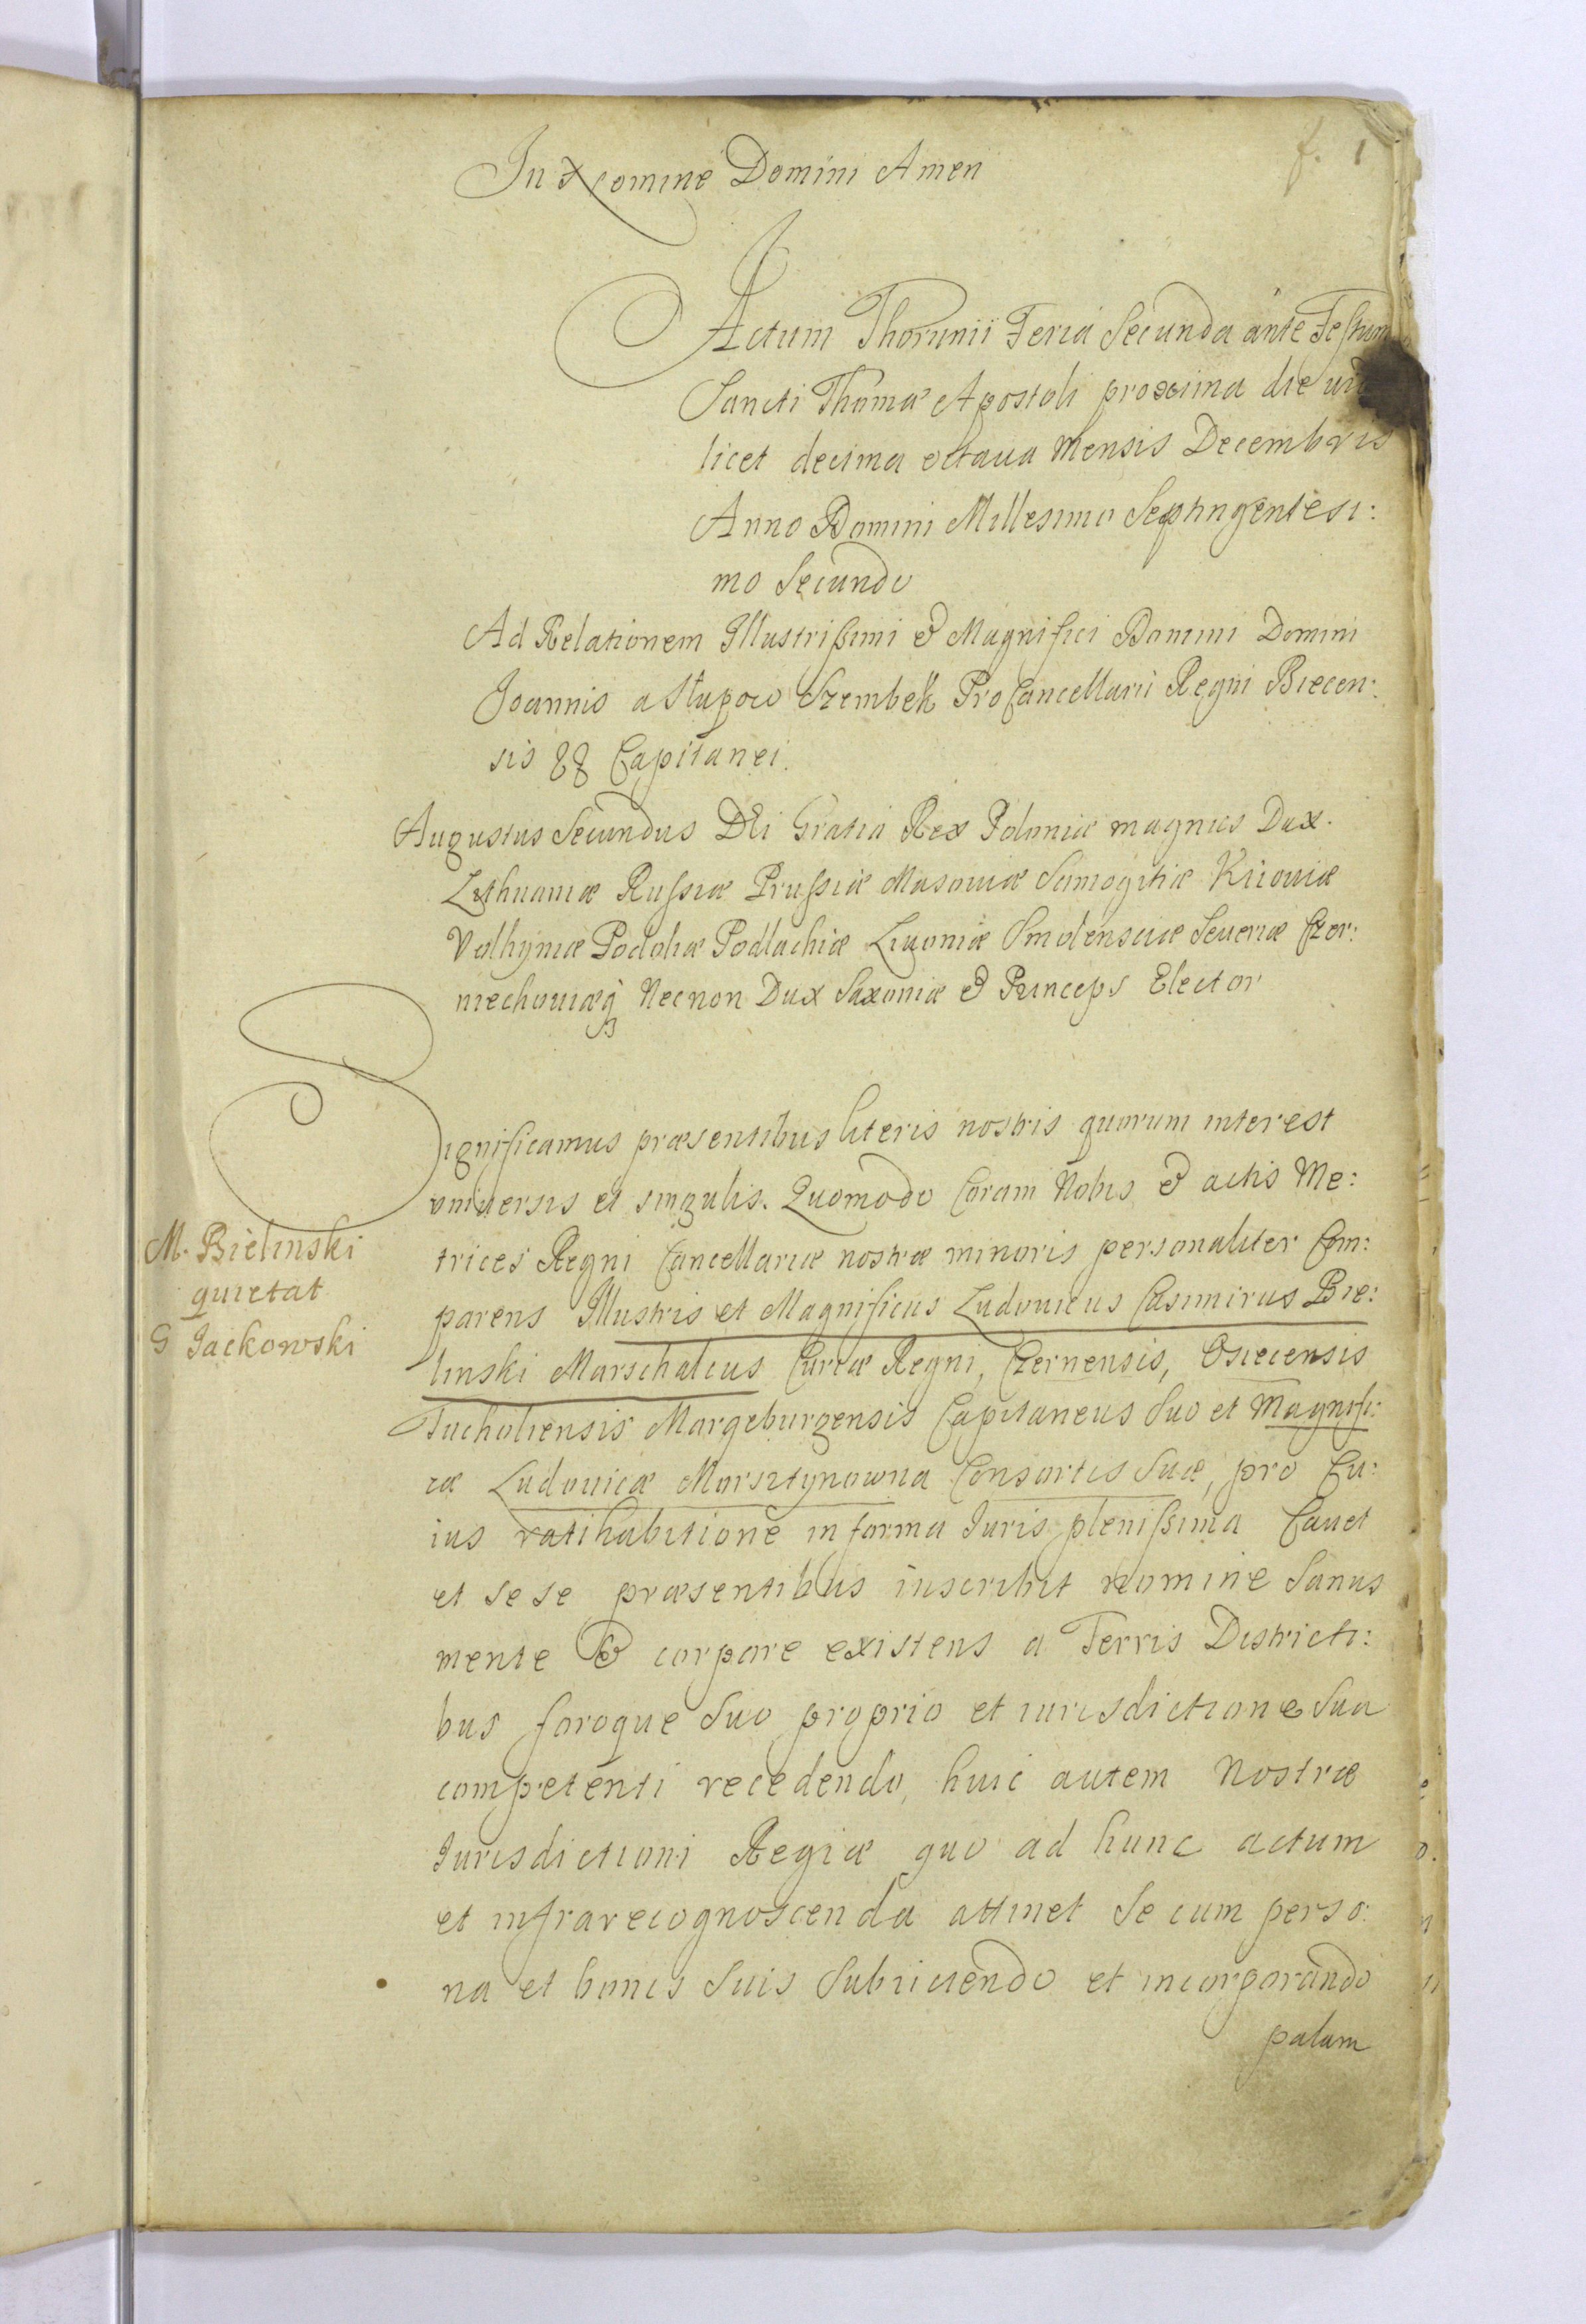 f. 1
In Nomine Domini Amen
Actum Thorunii Feria Secunda ante Festum
Sancti Thomæ Apostoli proxima die vide
licet decima octaua mensis Decembris
Anno Domini Millesimo Septingentesi:
mo Secundo
Ad Relationem Illustrissimi & Magnifici Domini Domini
Joannis a Słupow Szembek ProCancellarii Regni Biecen:
sis && Capitanei.
Augustus Secundus DEi Gratia Rex Poloniæ magnus Dux.
Lithuaniæ Russiæ Prussiæ Masouiæ Samogitiæ Kiiouiæ
Volhyniæ Podoliæ Podlachiæ Liuoniæ Smolensciæ Seueriæ Czer:
niechouiæq Necnon Dux Saxoniæ & Princeps Elector
Significamus præsentibus literis nostris quorum interest
vniuersis et singulis. Quomodo Coram Nobis & actis Me:
trices Regni Cancellariæ nostræ minoris personaliter Com:
parens Illustris et Magnificus Ludouicus Casimirus Bie:
linski Marschalcus Curiæ Regni, Czernensis, Osiecensis
Tucholiensis Margeburgensis Capitaneus Suo et Magnifi:
cæ Ludouicæ Morsztynowna Consortis Suæ, pro Cu:
ius ratihabitione in forma Juris plenissima Cauet
et se se præsentibus inscribit nomine Sanus
mente & corpore existens a Terris Districti:
bus foroque Suo proprio et iurisdictione Sua
competenti recedendo, huic autem Nostræ
Jurisdictioni Regiæ quo ad hunc actum
et infrarecognoscenda attinet Se cum perso:
na et bonis Suis Subiiciendo et incorporando
palam
M. Bielinski
quietat
G Jackowski